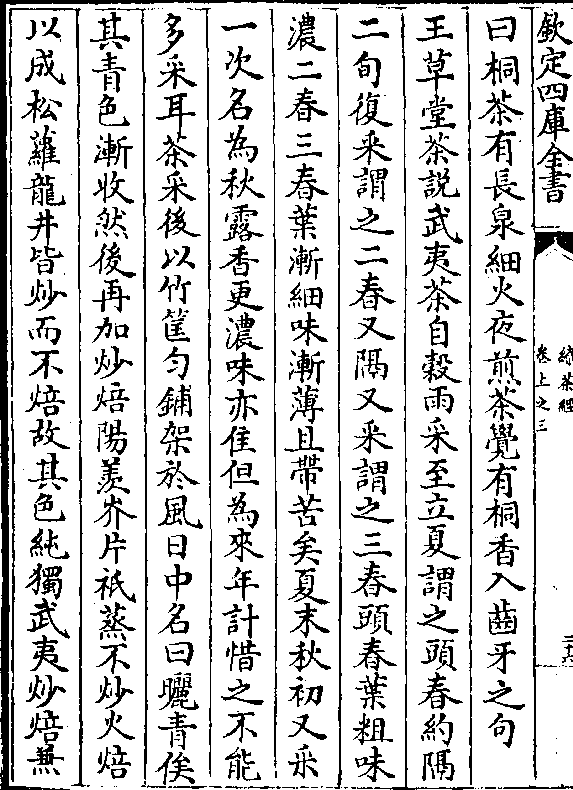 欽定四庫全書
續茶經
卷上之三
三十六
曰桐茶有長泉細火夜煎茶覺有桐香入齒牙之句
王草堂茶說武夷茶自穀雨采至立夏謂之頭春約隔
二旬復采謂之二春又隔又采謂之三春頭春葉粗味
濃二春三春葉漸細味漸薄且帶苦矣夏末秋初又采
一次名為秋露香更濃味亦佳但為來年計惜之不能
多采耳茶采後以竹筐勻鋪架於風日中名曰曬青俟
其青色漸收然後再加炒焙陽羨岕片祇蒸不炒火焙
以成松蘿龍井皆炒而不焙故其色純獨武夷炒焙兼